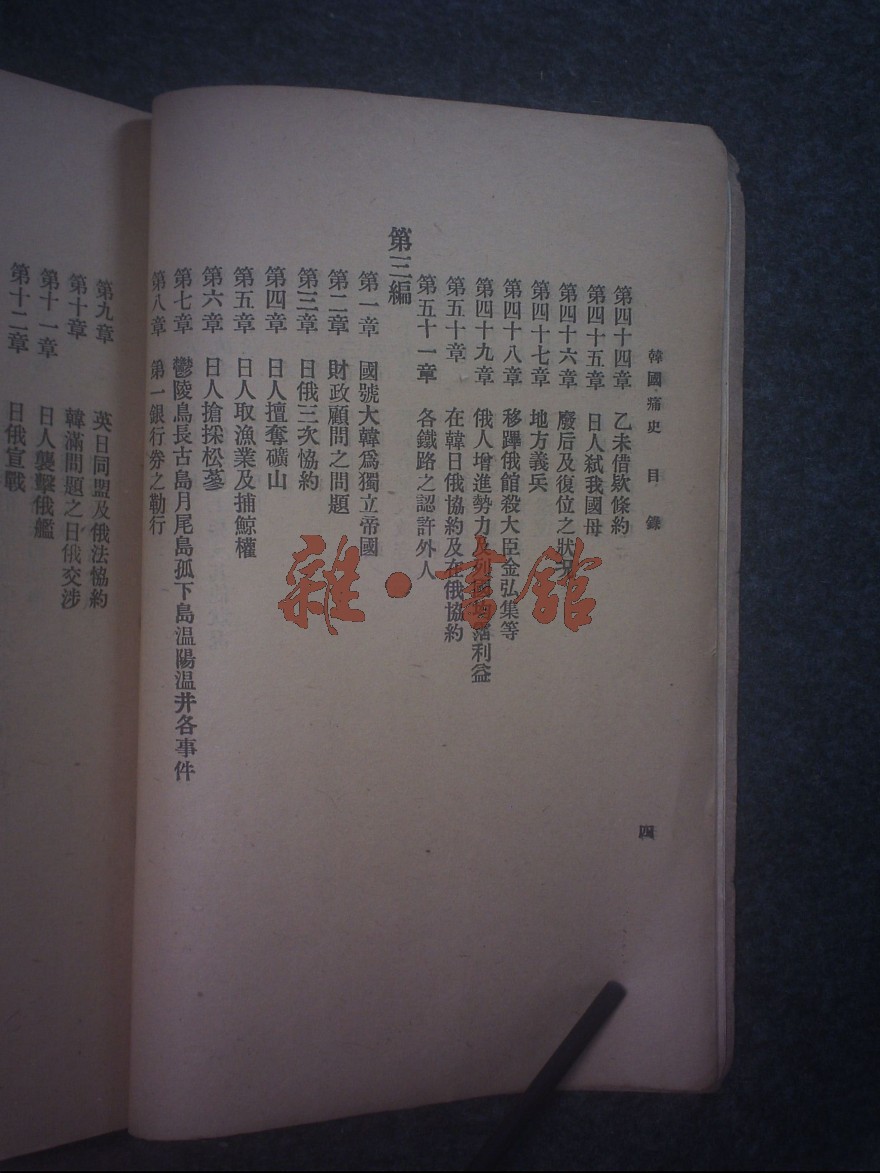 韓國痛史 目錄 四
第四十四章 乙未借欵條約
第四十五章 日人弑我國母
第四十六章 廢后及復位之狀况
第四十七章 地方義兵
第四十八章 移蹕俄館殺大臣金弘集等
第四十九章 俄人增進勢力及列國均霑利益
第五十章 在韓日俄協約及在俄協約
第五十一章 各鐵路之認許外人
第三編
第一章 國號大韓爲獨立帝國
第二章 財政顧問之問題
第三章 日俄三次恊約
第四章 日人擅奪礦山
第五章 日人取漁業及捕鯨權
第六章 日人搶採松蔘
第七章 鬱陵島長古島月尾島孤下島温陽温井各事件
第八章 第一銀行券之勒行
第九章 英日同盟及俄法恊約
第十章 韓滿問題之日俄交涉
第十一章 日人襲擊俄艦
第十二章 日俄宣戰
雜·書館